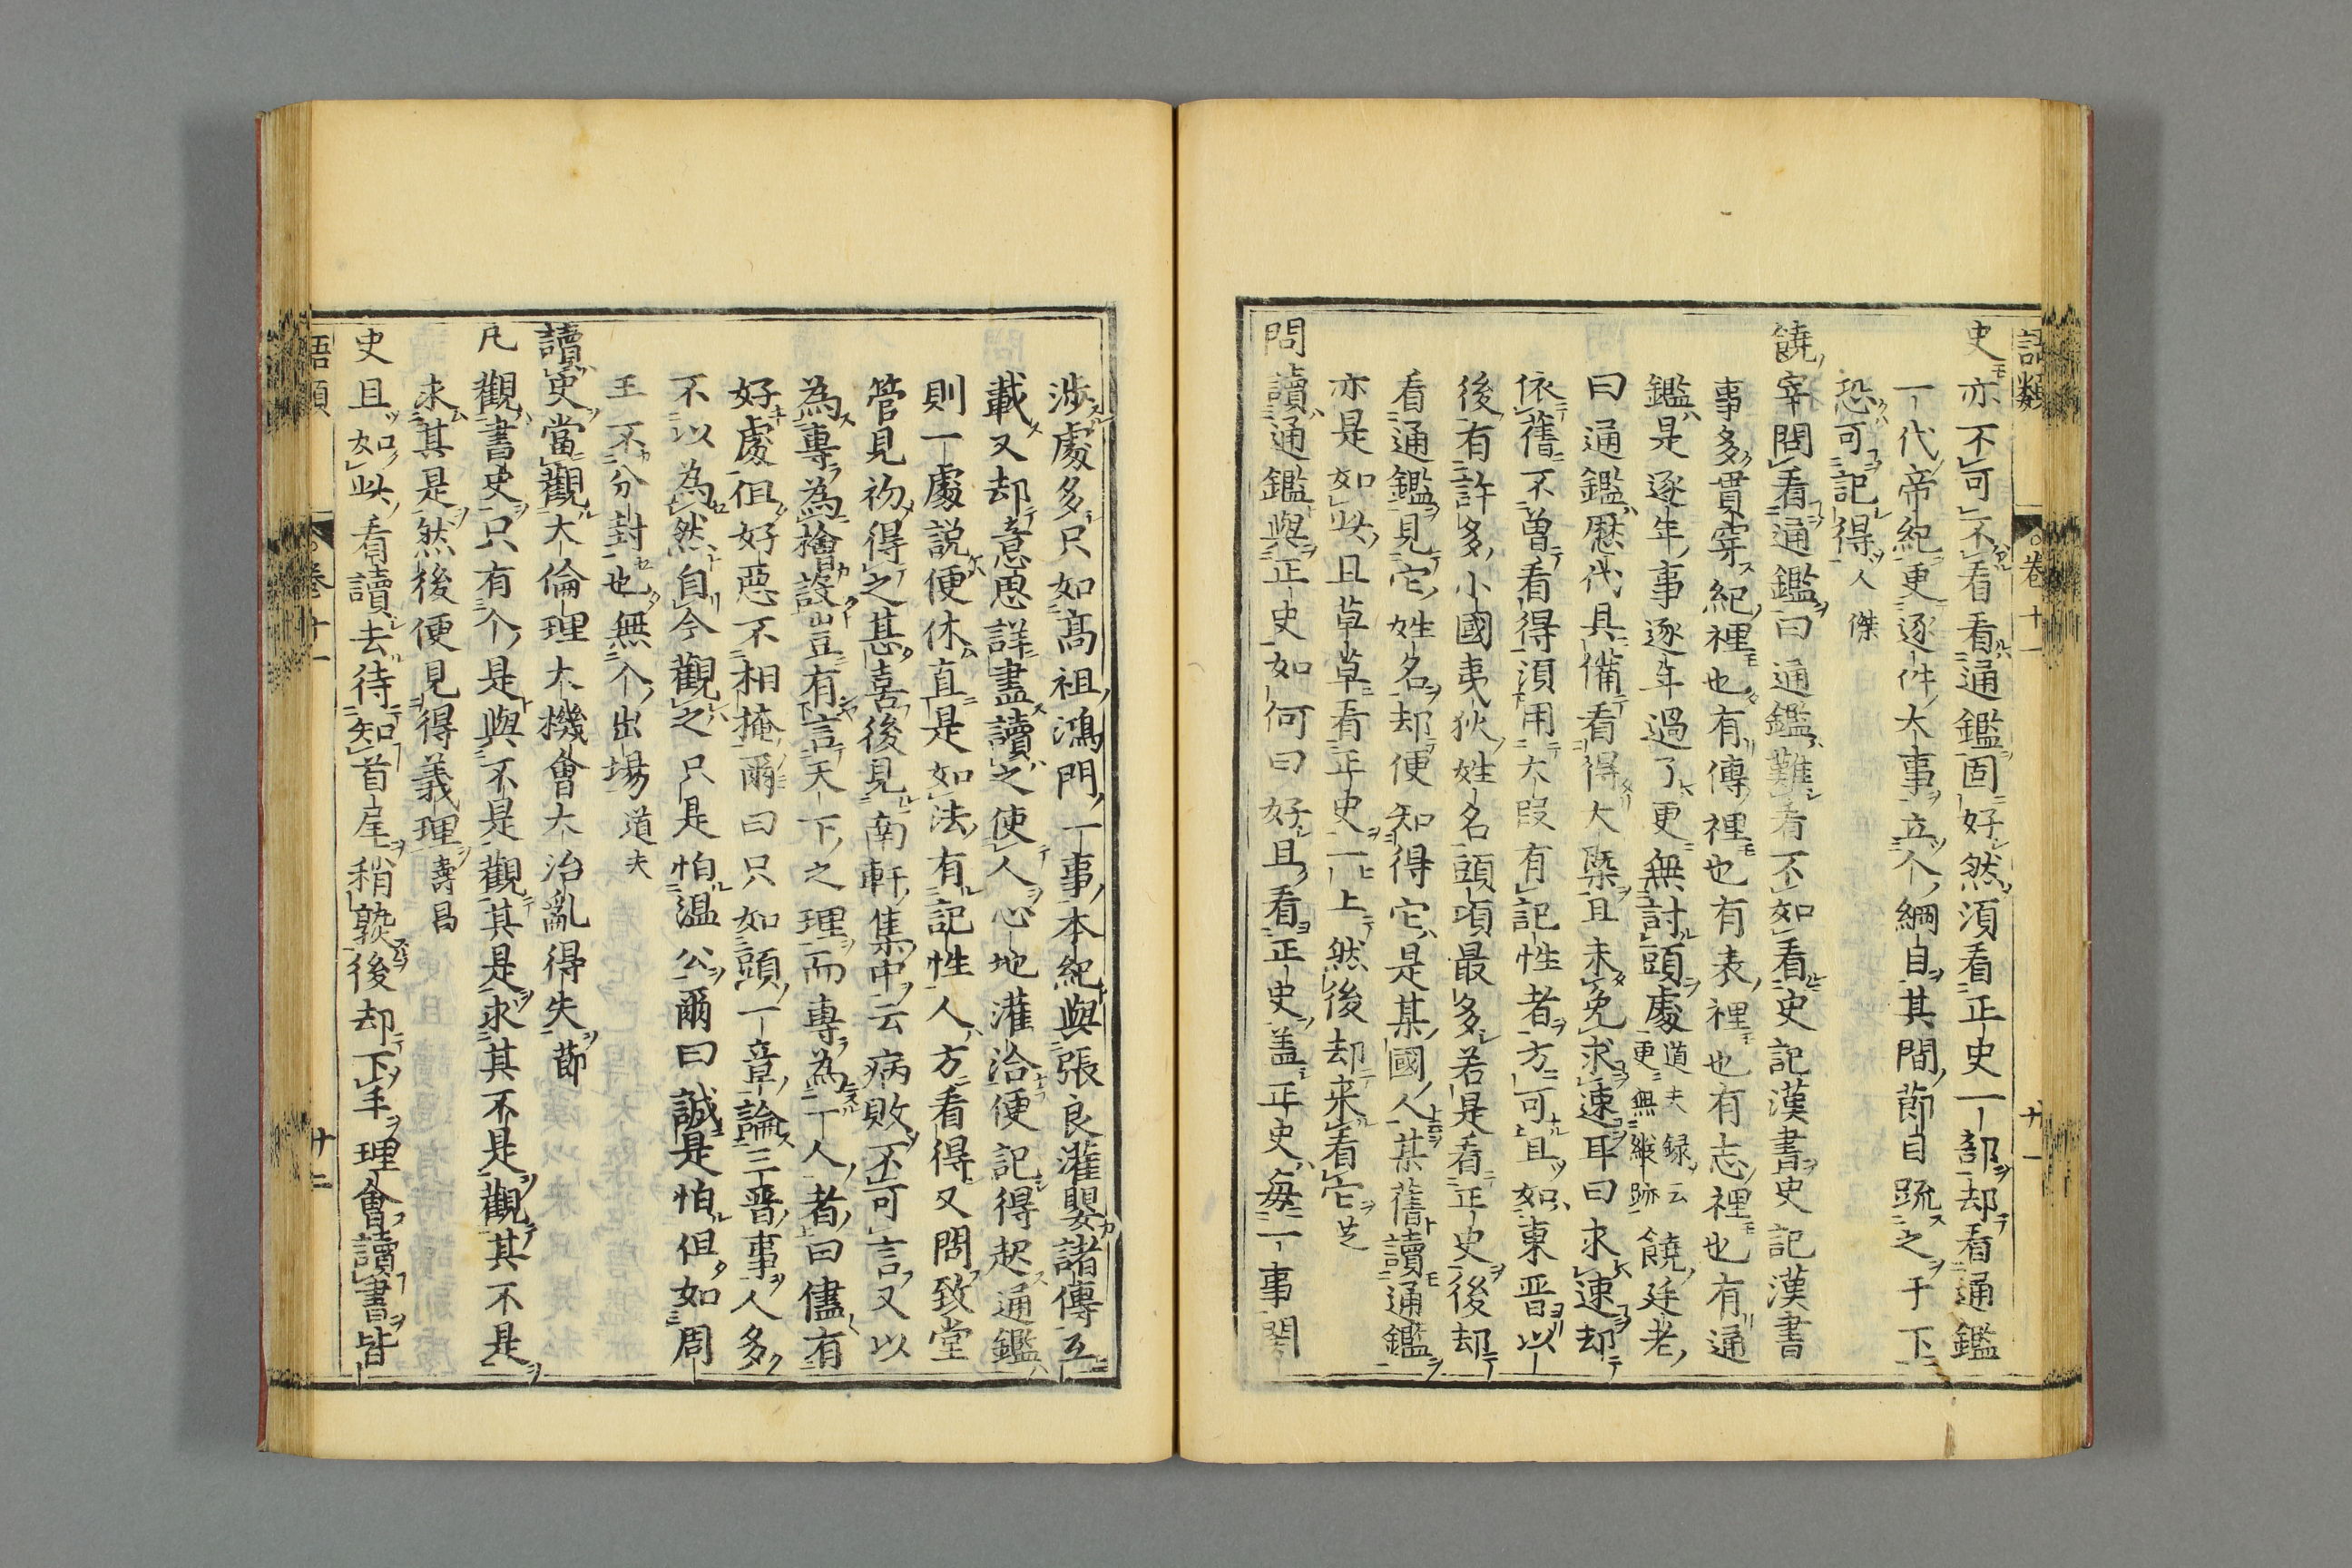 語類 卷十一 十一
史亦不可不看看通鑑固好然須看正史一部却看通鑑
一代帝紀更逐件大事立个綱目其間節目疏之于下
恐可記得人傑
饒宰問看通鑑曰通鑑難看不如看史記漢書史記漢書
事多貫穿紀裡也有傳裡也有表裡也有志裡也有通
鑑是逐年事逐年過了更無討頭處道夫録云更無縱跡饒廷老
曰通鑑歷代具備看得大槩且未免求速耳曰求速却
依舊不曾看得須用大叚有記性者方可且如東晋以
後有許多小國夷狄姓名頭項最多若是看正史後却
看通鑑見它姓名却便知得它是某國人某舊讀通鑑
亦是如此且草草看正史一上然後却来看它芝
問讀通鑑與正史如何曰好且看正史盖正史每一事関
涉處多只如髙祖鴻門一事本紀與張良灌嬰諸傳互
載又却意思詳盡讀之使人心地灌洽便記得起通鑑
則一處説便休直是如法有記性人方看得又問致堂
管見初得之甚喜後見南軒集中云病敗不可言又以
為專為檜設豈有言天下之理而專為一人者曰儘有
好處但好惡不相掩爾曰只如頭一章論三晋事人多
不以為然自今觀之只是怕温公爾曰誠是怕但如周
王不分封也無个出場道夫
讀史當觀大倫理大機會大治亂得失節
凡觀書史只有个是與不是觀其是求其不是觀其不是
求其是然後便見得義理壽昌
史且如此看讀去待知首尾稍熟後却下手理會讀書皆
語類 卷十一 十二